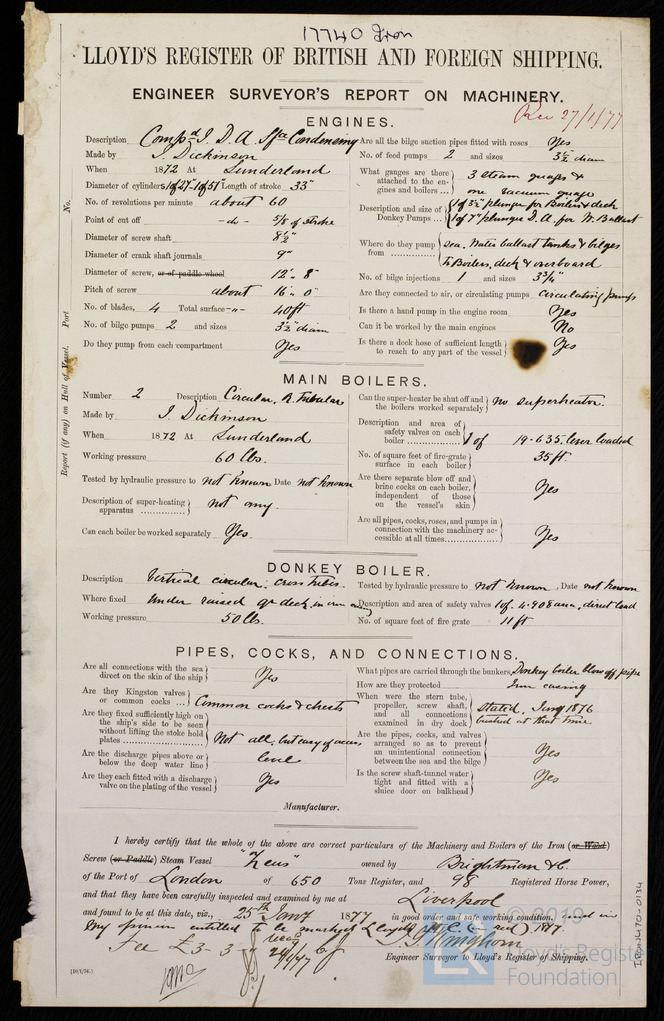 17740 Iron
LLOYD'S REGISTER OF BRITISH AND FOREIGN SHIPPING.
ENGINEER SURVEYOR'S REPORT ON MACHINERY.
Rec 27/1/77
ENGINES.
Description Compd I. D. A. Sfce Condensing
Made by J. Dickinson
When 1872 At Sunderland
Diameter of cylinders 1 of 27"-1 of 51" Length of stroke 33"
No. of revolutions per minute about 60
Point of cut off -do- 5/8 of stroke
Diameter of screw shaft 8½"
Diameter of crank shaft journals 9"
Diameter of screw, or of paddle wheel 12'-8"
Pitch of screw about 16'-0"
No. of blades, 4 Total surface 40ft
No. of bilge pumps 2 and sizes 3½" diam
Do they pump from each compartment Yes
Are all the bilge suction pipes fitted with roses Yes
No. of feed pumps 2 and sizes 3½ diam
What gauges are there attached to the engines and boilers... 3 steam guages & one vacuum guage
Description and size of Donkey Pumps... 1 of 3½" plunger for Boilers & deck
1 of 7" plunger D. A. for W. Ballast
Where do they pump from sea, Water ballast tanks & bilges
To Boilers, deck & overboard
No. of bilge injections 1 and sizes 3¾"
Are they connected to air, or circulating pumps Circulating pumps
Is there a hand pump in the engine room Yes
Can it be worked by the main engines No
Is there a deck hose of sufficient length to reach to any part of the vessel Yes
No.
Port
Report (if any) on Hull of Vessel.
MAIN BOILERS.
Number 2 Description Circular, R. Tubular
Made by J. Dickinson
When 1872 At Sunderland
Working pressure 60 lbs.
Tested by hydraulic pressure to not known Date not known
Description of super-heating apparatus not any.
Can each boiler be worked separately Yes.
Can the super-heater be shut off and the boilers worked separately no superheater.
Description and area of safety valves on each boiler 1 of 19.635. lever loaded
No. of square feet of fire-grate surface in each boiler 35 ft
Are there separate blow off and brine cocks on each boiler, independent of those on the vessel's skin Yes
Are all pipes, cocks, roses, and pumps in connection with the machinery accessible at all times Yes
DONKEY BOILER.
Description Vertical circular: cross tubes.
Where fixed Under raised qr deck, in
Working pressure 50 lbs.
Tested by hydraulic pressure to not known, Date not known
Description and area of safety valves 1 of 4.908 area, direct load
No. of square feet of fire grate 11 ft
PIPES, COCKS, AND CONNECTIONS.
Are all connections with the sea direct on the skin of the ship Yes
Are they Kingston valves or common cocks ... Common cocks & chests
Are they fixed sufficiently high on the ship's side to be seen without lifting the stoke hold plates Not all, but easy of access
Are the discharge pipes above or below the deep water line level
Are they each fitted with a discharge valve on the plating of the vessel Yes
What pipes are carried through the bunkers, Donkey boiler blow off pipe
How are they protected Iron casing
When were the stern tube, propeller, screw shaft, and all connections examined in dry dock stated, Jany 1876
bushed at that time.
Are the pipes, cocks, and valves arranged so as to prevent an unintentional connection between the sea and the bilge Yes
Is the screw shaft-tunnel water tight and fitted with a sluice door on bulkhead Yes
Manufacturer.
I hereby certify that the whole of the above are correct particulars of the Machinery and Boilers of the Iron (or Wood)
Screw (or Paddle) Steam Vessel "Zeus" owned by Brightman & Co.
of the Port of London of 650 Tons Register, and 98 Registered Horse Power,
and that they have been carefully inspected and examined by me at Liverpool
and found to be at this date, viz., 25th Jany 1877 in good order and safe working condition. and in
my opinion entitled to be marked Lloyds M.C. (in red) 1.77
Fee £3-3-
Engineer Surveyor to Lloyd's Register of Shipping.
IRON470-0134
© 2019
Lloyd's Register
Foundation